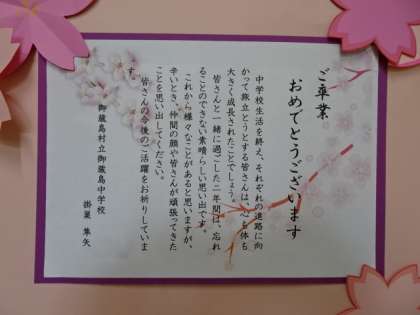 ご卒業
おめでとうございます
中学校生活を終え、それぞれの進路に向
かって旅立とうとする皆さんは、心も体も
大きく成長されたことでしょう。
皆さんと一緒に過ごした二年間は、忘れ
ることのできない素晴らしい思い出です。
これから様々なことがあると思いますが、
辛いとき、仲間の顔や皆さんが頑張ってきた
ことを思い出してください。
皆さんの今後のご活躍をお祈りしていま
す。
御蔵島村立御蔵島中学校
掛巣 隼矢